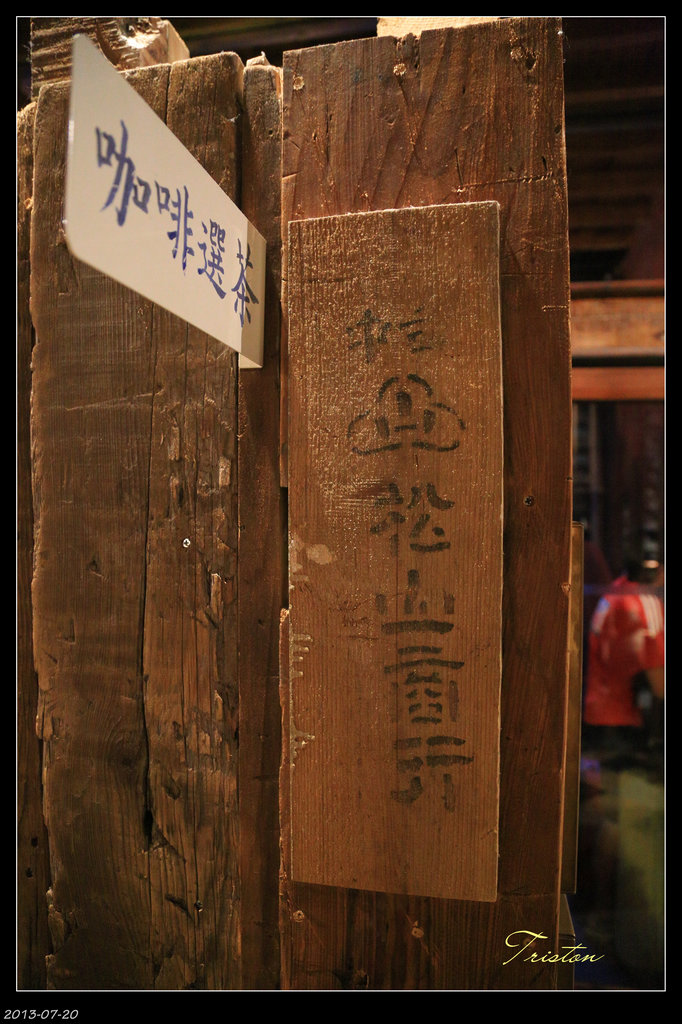 咖啡選茶
松山商行
Triston
2013-07-20